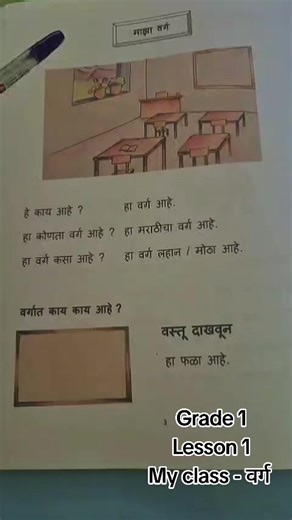 माझा वर्ग
हे काय आहे ? हा वर्ग आहे.
हा कोणता वर्ग आहे ? हा मराठीचा वर्ग आहे.
हा वर्ग कसा आहे ? हा वर्ग लहान / मोठा आहे.
वर्गात काय काय आहे ?
वस्तू दाखवून
हा फळा आहे.
3
Grade 1
Lesson 1
My class - वर्ग